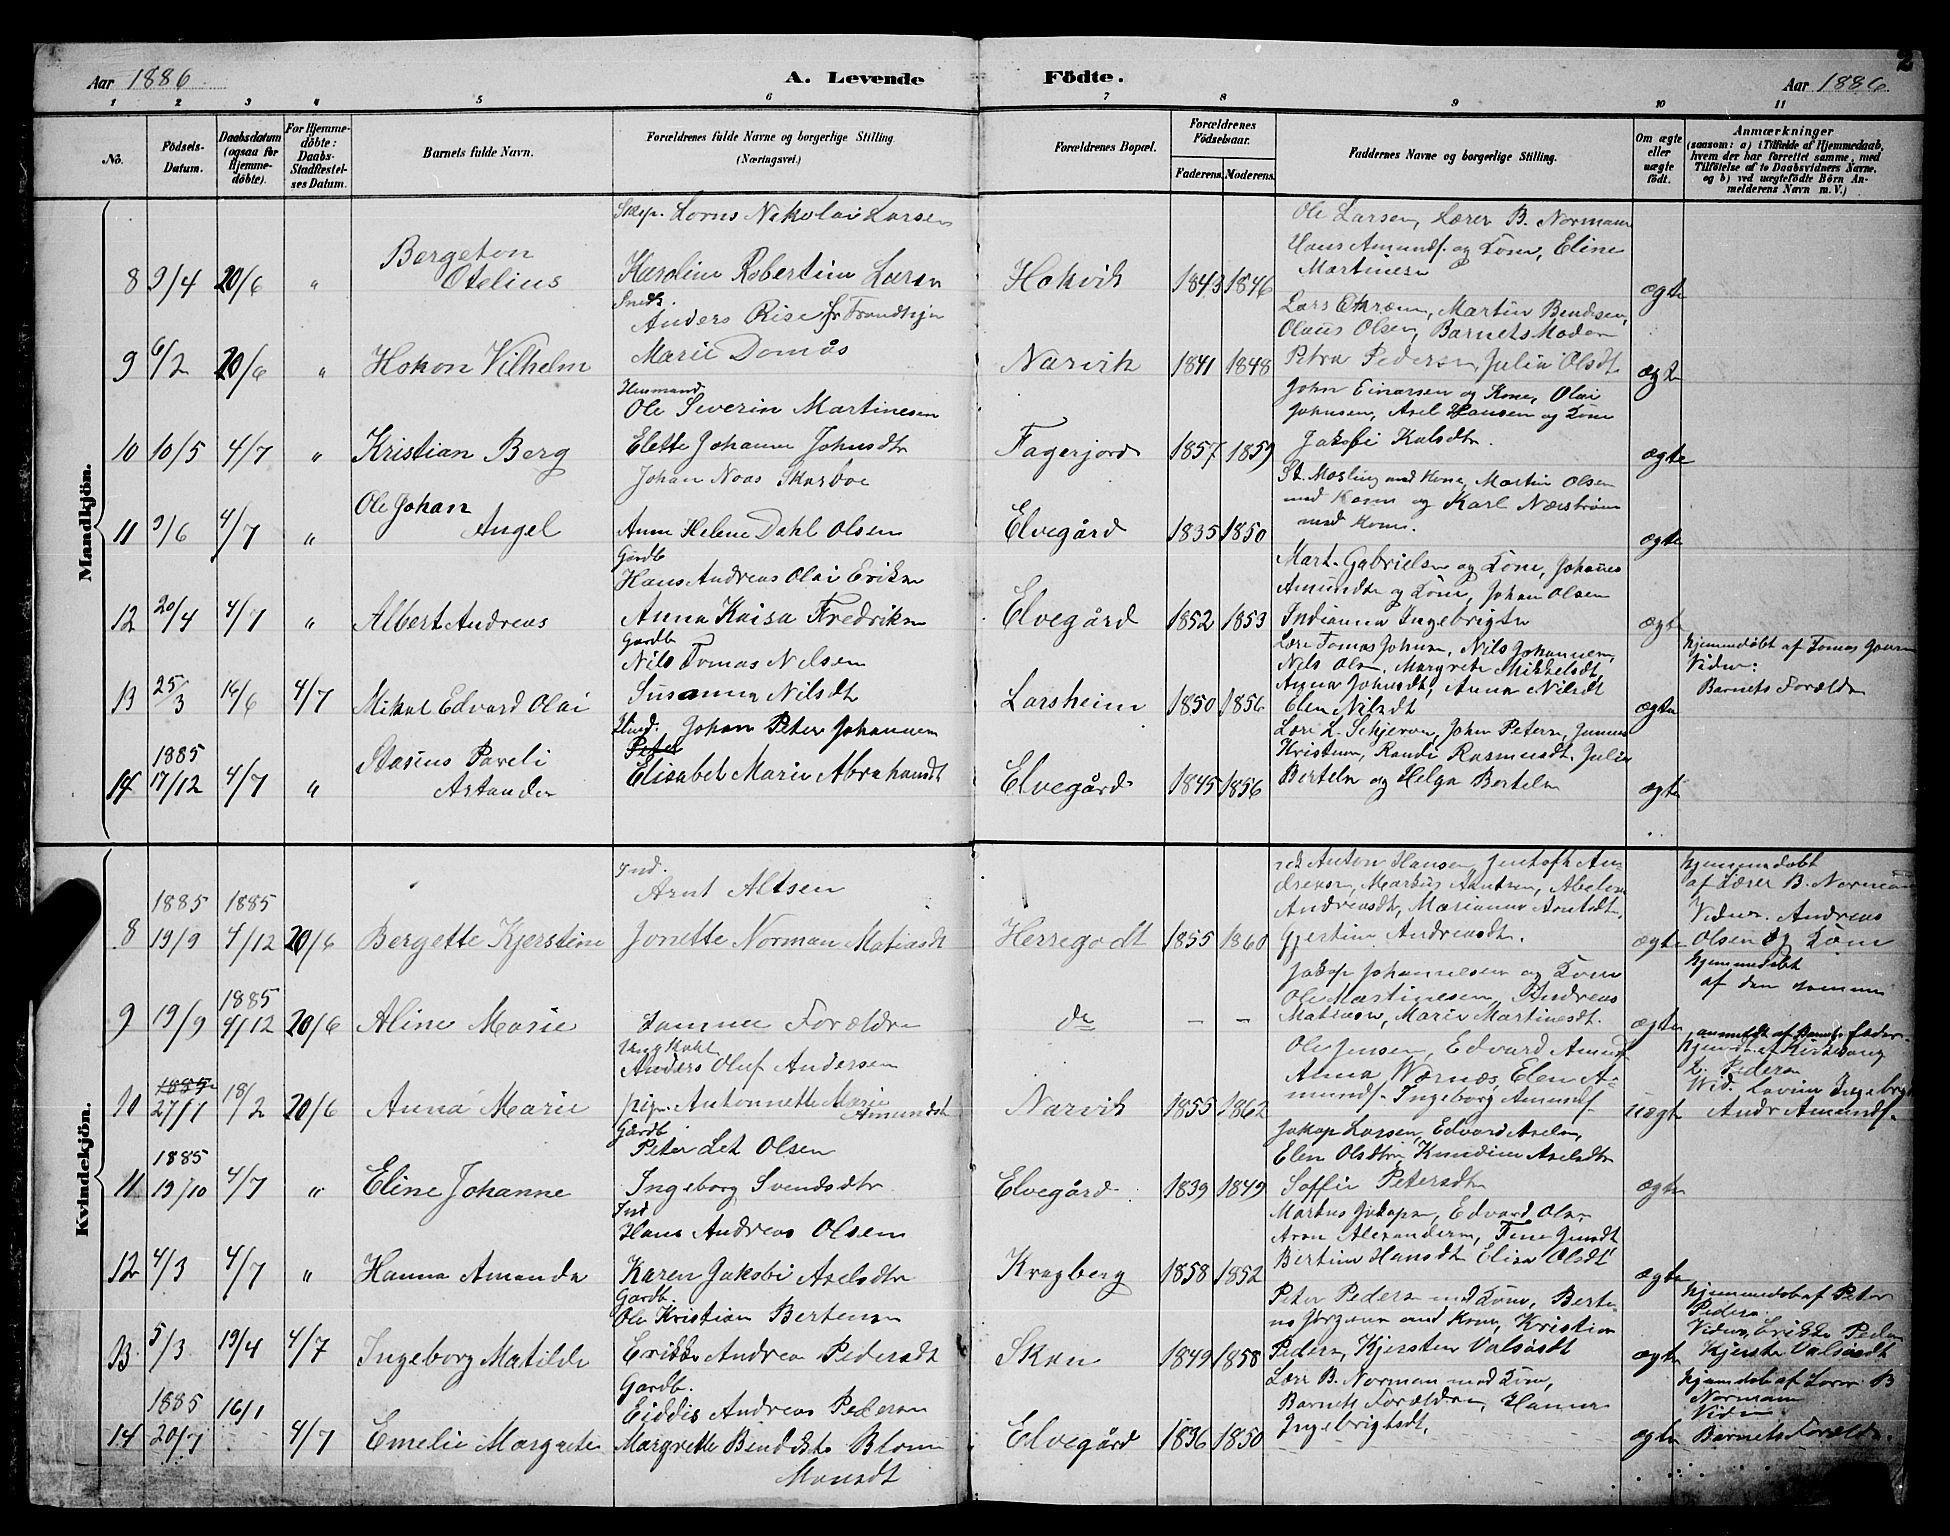 2
Aar 1886
A. Levende Födte.
Aar 1886
1 2 3 4 5 6 7 8 9 10 11
No.
Födsels-Datum.
Daabsdatum (ogsaa for Hjemme-döbte).
For Hjemme-döbte: Daabs-Stadfæstel-ses Datum.
Barnets fulde Navn.
Forældrenes fulde Navne og borgerlige Stilling. (Næringsvei.)
Forældrenes Bopæl.
Forældrenes Födselsaar.
Faderens. Moderens.
Faddernes Navne og borgerlige Stilling.
Om ægte eller uægte födt.
Anmærkninger
(saasom: a) i Tilfælde af Hjemmedaab, hvem der har forrettet samme, med Tilföielse af to Daabsvidners Navne, og b) ved uægtefödte Börn An-melderens Navn m. V.)
Mandkjön.
8 9/4 20/6 "
Bergeton
Otelius
Lorns Nikolai Larsen
Karoline Robertine Larsn
Hokvik 1843 1846
Ole Larsen, Lærer B. Norman
Hans Amundf. og Kone, Eline
Martinesn
ægte
9 6/2 20/6 " Hokon Vilhelm
Anders Rise fr Trondhjm
Marie Domås
Narvik 1841 1848
Lars Martin Bendssen,
Olaus Olsen, Barnets Moder
Petra Pedersen, Julia Olsdt
ægte
10 10/5 4/7 " Kristian Berg
Husmand
Ole Severin Martinesen
Elette Johanna Johnsdtr
Fagerjord 1857 1859
John Einarsen og Kone, Olai
Johnsen, Axel Hansen og Kone
Jakobi
ægte
11 9/6 4/7 "
Ole Johan
Angel
Johan Noas Skarboe
Anne Helene Dahl Olsen
Elvegård 1835 1850
St. Mosling med Kone, Martin Olsen
med Kone og Karl Næstrøm
med Kone.
ægte
12 20/4 4/7 " Albert Andreas
Gårdb
Hans Andreas Olai Eriksn
Anna Kaisa Fredriksn
Elvegård 1852 1853
Mart. Gabrielsn og Kone, Johanes
Amundse og Kone, Johan Olsen
Indianna Ingebrigtsn
ægte
13 25/3 16/6 4/7 Mikal Edvard Olai
Gardb
Nils Tomas Nilsen
Susanna Nilsdt
Larsheim 1850 1856
Lærer Tomas Johnsn, Nils Johannesn,
Nils Olsn, Margrete Mikkelsdt,
Anna Johnsdt, Anna Nilsdt
Elen Nilsdt
ægte
hjemmedøbt af Tomas
Vidner:
Barnets Forældre
14 1885 17/12 4/7 "
Stasius Pareli
Astander
Johan Peter Johannesn
Peter
Elisabet Marie Abrahamdt
Elvegård 1845 1856
Lærer L. Skjervn, John Petersn,
Kristensen, Randi Rasmusdt, Julia
Bertelsn og Helga Bertelsn
ægte
Kvindekjön.
8 1885 19/9 1885 4/12 20/6 Bergette Kjerstine
Ind.
Arnt Altsen
Jonette Norman Matiasdt
Herregodt 1855 1860
Anton Hansen, Jentoft An-
dreassn, Markus Arntsen, Abelone
Andreasdt, Marianna Arntsdt,
Gjertine Andreasdt.
ægte
hjemmedøbt
af Lærer B. Norman
Vidner. Andreas
Olsen og Kone
9 19/9 1885 4/12 20/6 Aline Marie
Samme Forældre
do — —
Jakop Johannesen og Kone
Ole Martinesen, Andreas
Matiassn, Marie Martinesdt.
ægte
hjemmedøbt
af den samme
10 1885 27/1 18/2 20/6 Anna Marie
Ungkarl
Anders Oluf Andersen
pige. Antonette Marie
Amundsdt
Narvik 1855 1862
Ole Jensen, Edvard Amund
Anna Værnæs, Elen A-
mundf. Ingeborg Amundf
uægte
anmeldt af Barnets Fader.
hjemd. af Kirkesang
L. Pedersn
Vid. Lovise Ingebrigt
Andr Amundf.
11 1885 19/10 4/7 " Eline Johanne
Gårdb
Peter Let Olsen
Ingeborg Svendsdtr
Elvegård 1839 1849
Jakop Larsen, Edvard Axelsn,
Elen Olsdtr, Knudine Axelsdtr
Soffie Petersdt
ægte
12 4/3 4/7 " Hanna Amanda
Ind
Hans Andreas Olsen
Karen Jakobi Axelsdtr
Kragberg 1858 1852
Markus Jakopsn, Edvard Olsn
Aron Alexandersn, Fine
Bertine Hansdt, Elisa Olsdt
ægte
13 5/3 19/4 4/7 Ingeborg Matilde
Gardb.
Ole Kristian Bertensn
Erikke Andrea Pedersdt
Skan 1849 1858
Peter Pedersn med Kone, Berte-
us Jørgensn med Kone, Kristian
Pedersn, Kjersten Valsösdt
ægte
hjemmedøb af Peter
Pedersn
Vidner, Erikke Pedersn
Kjerste Valsösdt
14 1885 20/7 16/1 4/7 Emelie Margrete
Gardb.
Eiddis Andreas Pedersn
Margrette Bendikte Blom
Monsdt
Elvegård 1836 1850
Lærer B. Norman med Kone,
Barnets Forældre, Hanna
Ingebrigtsdt,
ægte
hjemdøb af Lærer B
Norman
Vidn
Barnets Forældre.